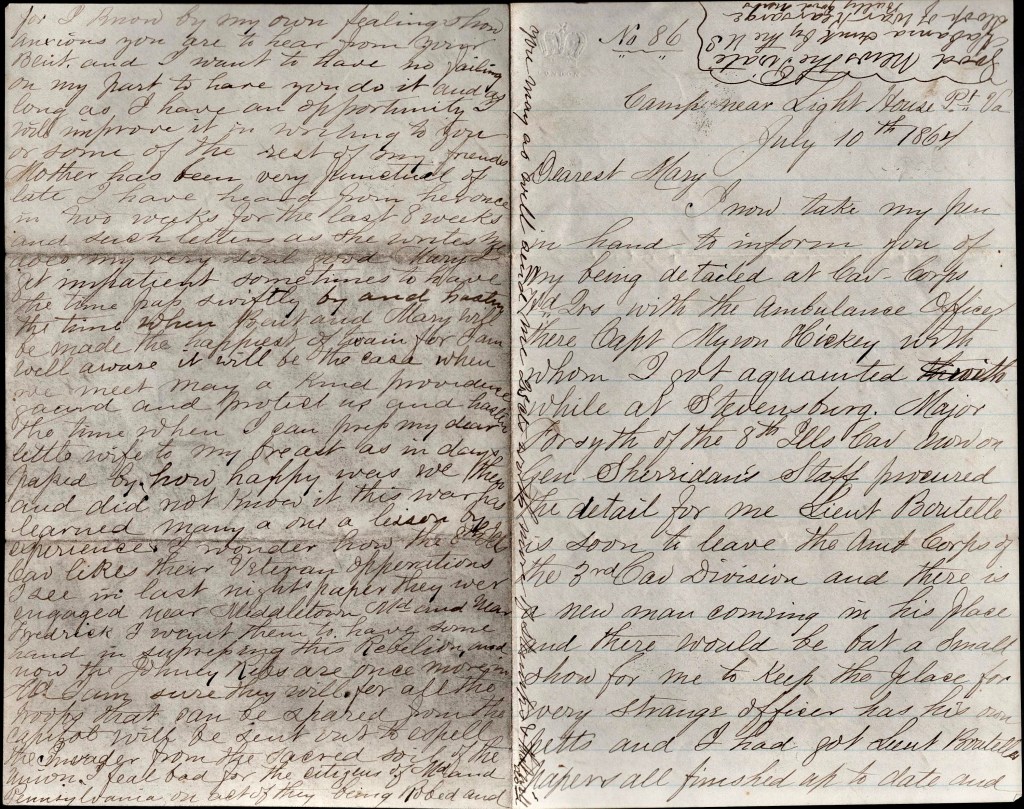 for I know by my own fealings how
anxious you are to hear from your
Bent. and I want to have no failing
on my part to have you do it and as
long as I have an opportunity I
will improve it in writing to you
or some of the rest of my friends
Mother has been very punctual of
late I have heard from her once
in two weeks for the last 8 weeks
and such letters as she writes
does my very soul good Mary I
git impatient sometimes to have
the time pas swiftly by and hasten
the time when Bent and Mary will
be made the happiest of twain for I am
well aware it will be the case when
we meet may a kind providence
gaurd and protect us and hasten
the time when I can pres my dear
little wife to my breast as in days
passed by. how happy was we then
and did not know it this war has
learned many a one a lesson by
experience. I wonder how the 8th Ill
Cav likes their Veteran opperations
I see in last night paper they wer
engaged near Middletown Md and Near
Fredrick I want them to have some
hand in suppresing this Rebelion and
now the Johney Rebs are once more in
Md I am sure they will for all the
troops that can be spared from the
capitol will be sent out to expell
the Invader from the sacred soil of the
Union. I feal bad for the citizens of Md and
Pennsylvania on act of they being Robed and
you may as well send me
No 86
Good News The Pirate
Alabama sunk by the U S
Sloop of War Kearsarge
Bully
Camp near Light House Pt Va
July 10th 1864
Dearest Mary
I now take my pen
in hand to inform you of
my being detailed at Cav Corps
Hd Qrs with the Ambulance Officer
there Capt Myron Hickey with
whom I got aquainted
while at Stevensburg. Major
Forsyth of the 8th Ills Cav now on
Gen Sherridan's Staff procured
the detail for me Lieut Boutelle
is soon to leave the Amb Corps of
the 3rd Cav Division and there is
a new man comeing in his place
and there would be but a small
show for me to keep the place for
every strange officer has his own
petts and I had got Lieut Boutelles
papers all finished up to date and